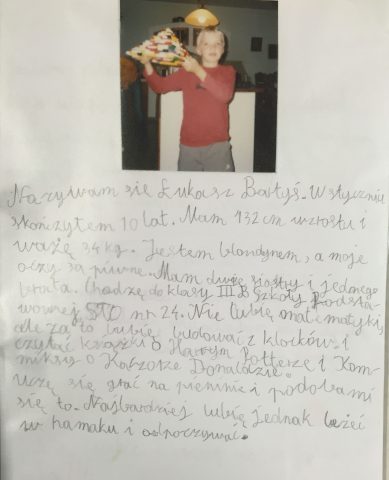 Nazywam się Łukasz Bałyś. W styczniu
skończyłem 10 lat. Mam 132 cm wzrostu i
ważę 34 kg. Jestem blondynem, a moje
oczy są piwne. Mam dwie siostry i jednego
brata. Chodzę do klasy III B Szkoły Podsta
wowej STO nr 24. Nie lubię matematyki,
ale za to lubię budować z klocków i
czytać książki o Harrym Potterze i kom
miksy o Kaczorze Donaldzie.
uczę się grać na pianinie i podoba mi
się to. Najbardziej lubię jednak leżeć
w hamaku i odpoczywać.